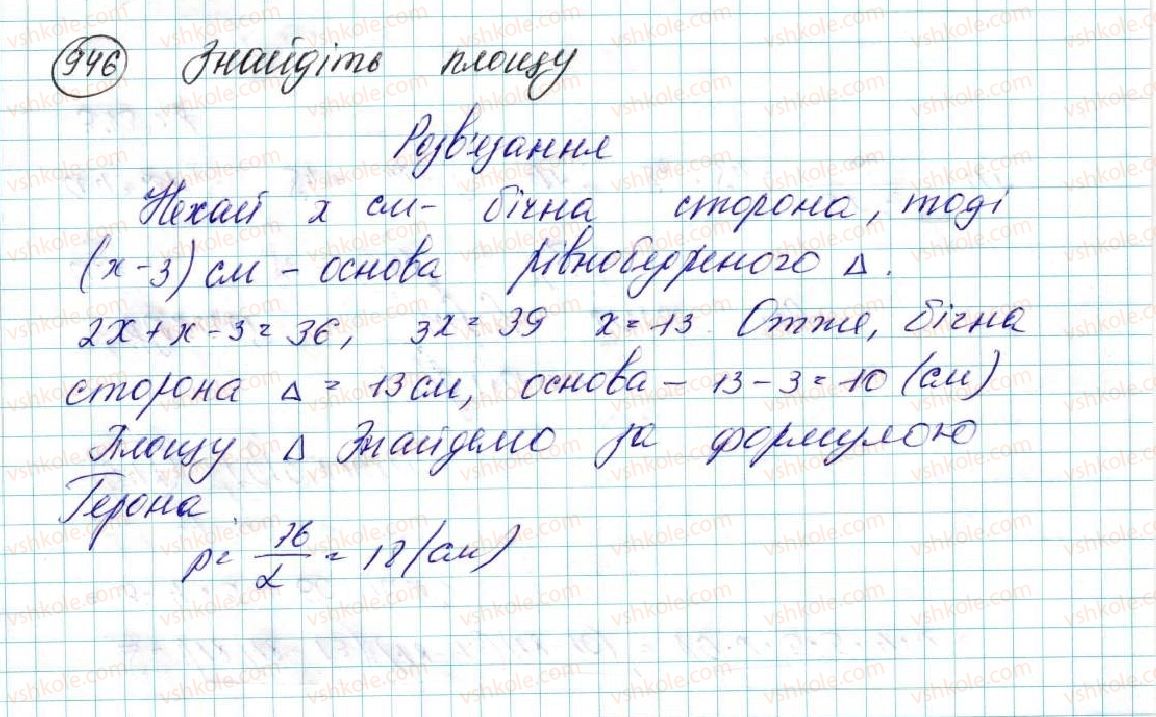 946 Знайдіть площу
Розв'язання
Нехай x см - бічна сторона, тоді
(x - 3) см - основа рівнобедреного Δ.
2x + x - 3 = 36, 3x = 39 x = 13. Отже, бічна
сторона Δ = 13 см, основа - 13 - 3 = 10 (см)
Площу Δ знайдемо за формулою
Герона.
p = 36/2 = 18 (см)